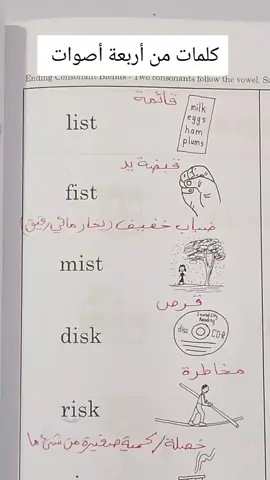 كلمات من أربعة أصوات
Ending Consonant Blends - Two consonants follow the vowel. Sa
قائمة
list
milk
eggs
ham
plums
قبضة يد
fist
ضباب خفيف (بخار مائي رقيق)
mist
قرص
disk
Sound City Reading
disc
CD-R
مخاطرة
risk
خصلة / كمية صغيرة من شئ ما